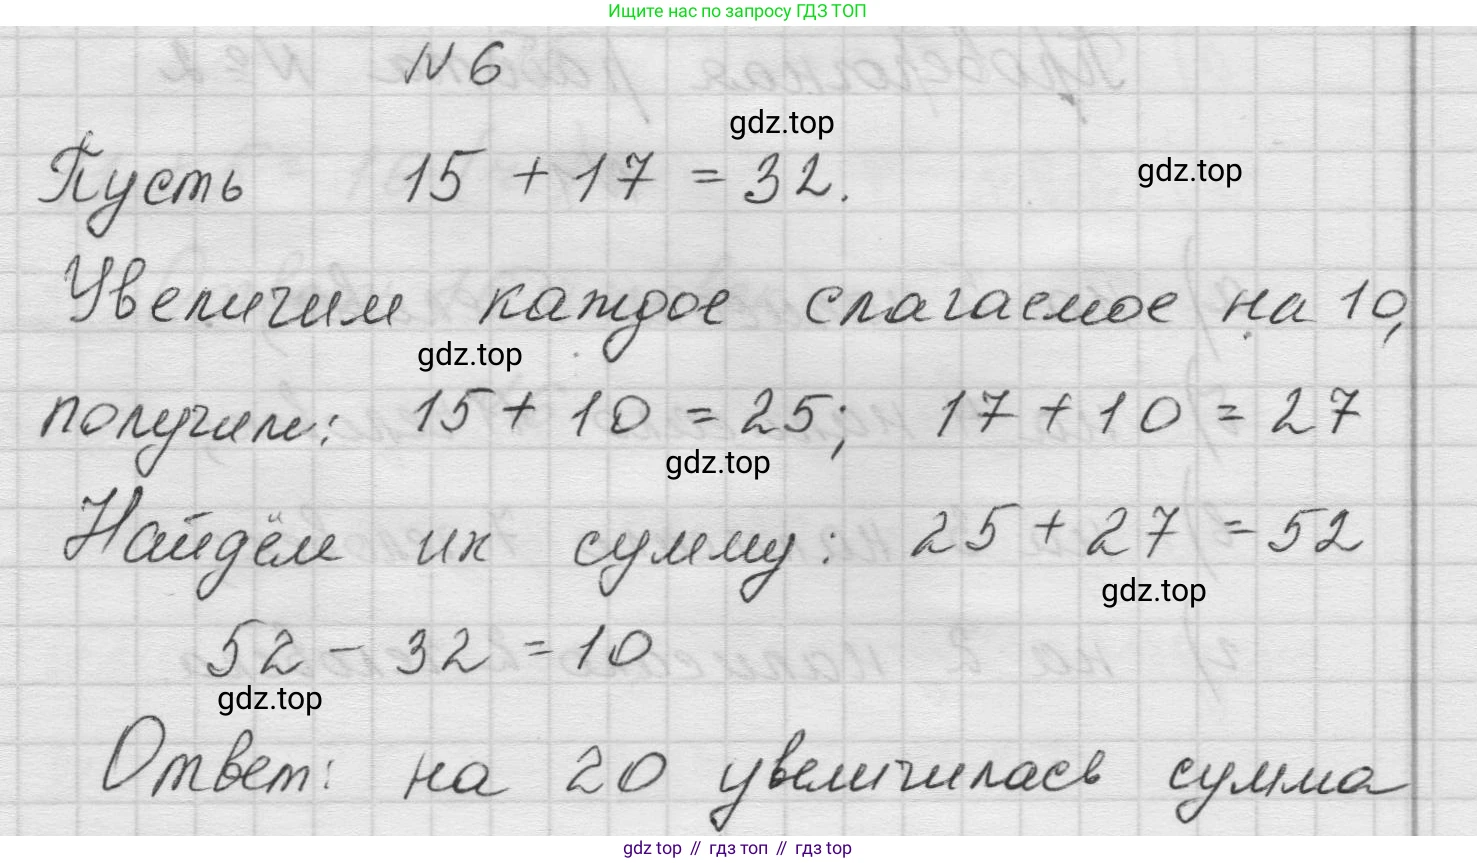 Ищите нас по запросу ГДЗ ТОП
N 6
gdz.top
Пусть 15 + 17 = 32.
gdz.top
Увеличим каждое слагаемое на 10,
gdz.top
получим: 15 + 10 = 25; 17 + 10 = 27
gdz.top
Найдём их сумму: 25 + 27 = 52
gdz.top
52 - 32 = 10
gdz.top
Ответ: на 20 увеличилась сумма
gdz top // гдз топ // гдз top